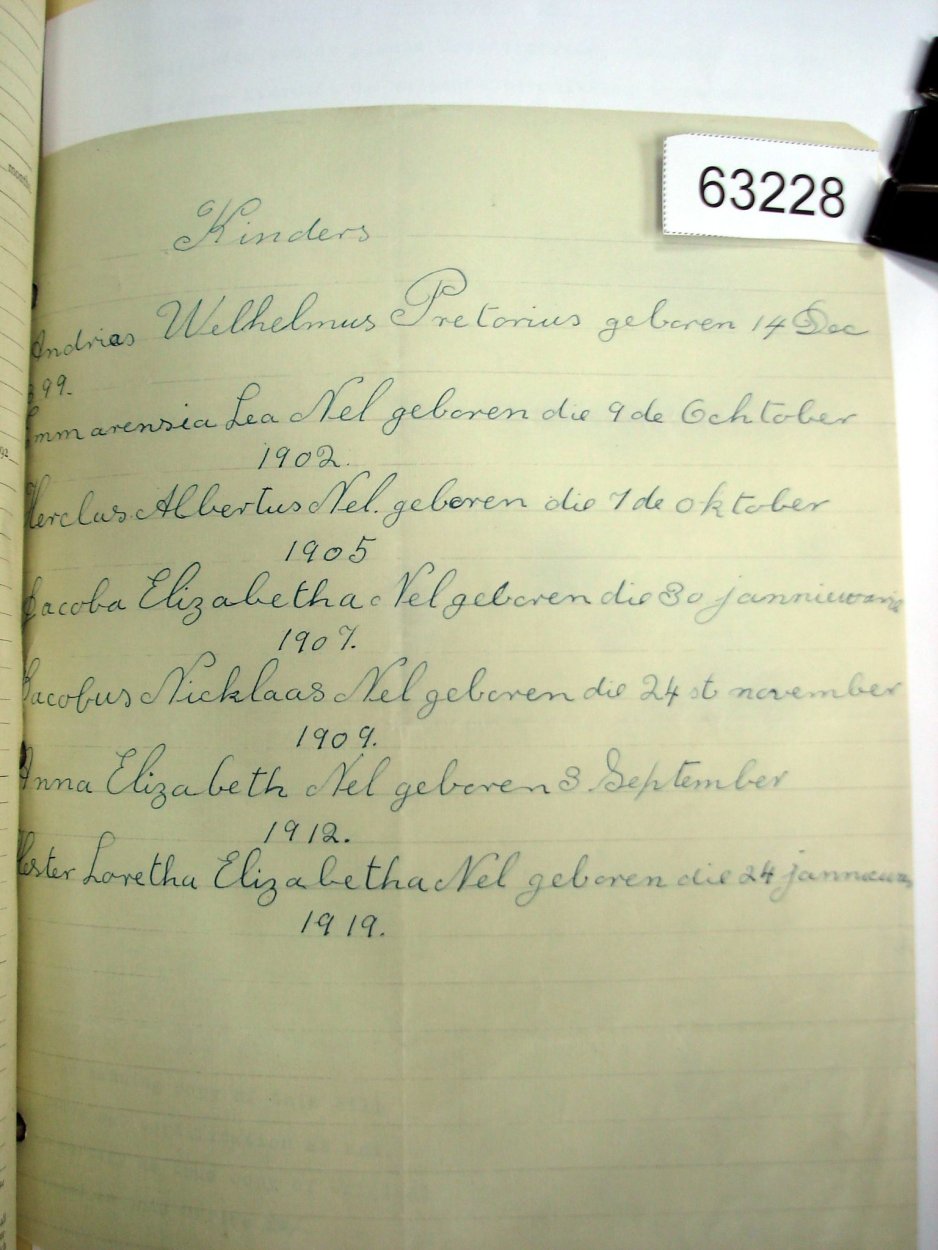 63228
Kinders
Andrias Welhelmus Pretorius geboren 14 Dec
99.
Emmarensia Lea Nel geboren die 9 de Ochtober
1902.
Herclas Albertus Nel. geboren die 7 de oktober
1905
Jacoba Elizabetha Nel geboren die 30 janniewarie
1907.
Jacobus Nicklaas Nel geboren die 24 st november
1909.
Anna Elizabeth Nel geboren 3 September
1912.
Hester Loretha Elizabetha Nel geboren die 24
1919.